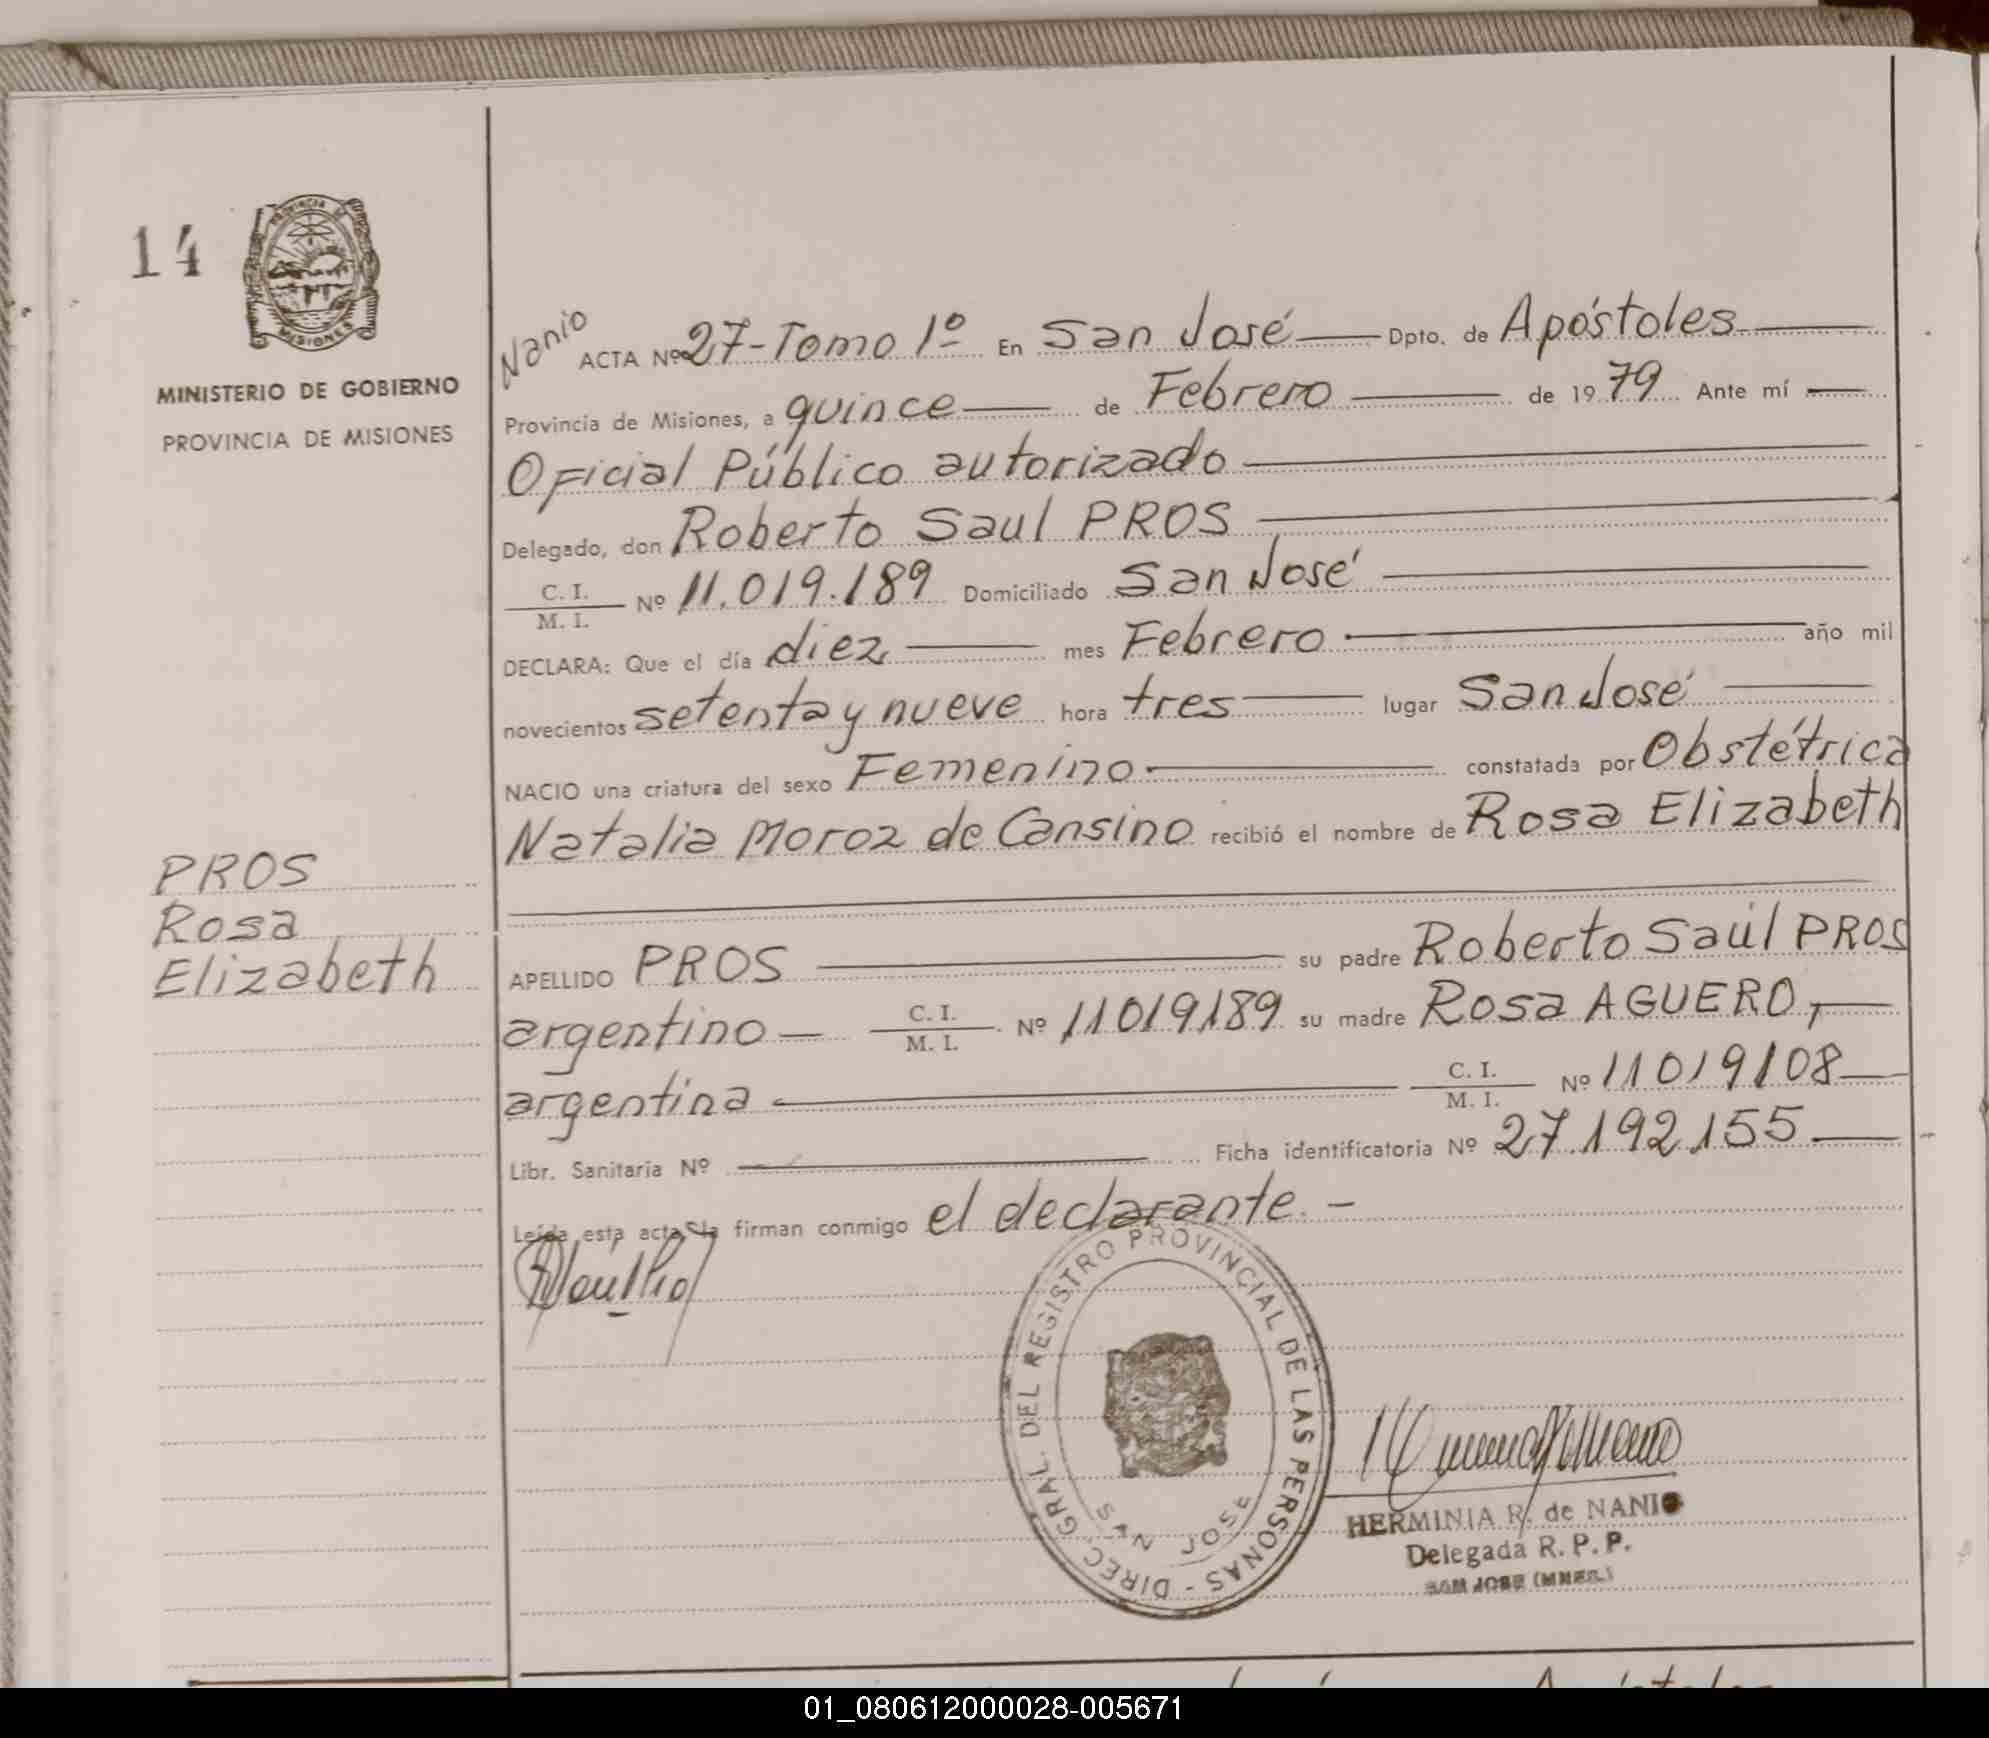 14
PROVINCIA DE
MISIONES
MINISTERIO DE GOBIERNO
PROVINCIA DE MISIONES
PROS
Rosa
Elizabeth
Nanio
ACTA Nº 27-Tomo 1º En San José Dpto. de Apóstoles
Provincia de Misiones, a quince de Febrero de 1979 Ante mí
Oficial Público autorizado
Delegado, don Roberto Saul PROS
C. I.
M. I. Nº 11.019.189 Domiciliado San José
DECLARA: Que el día diez mes Febrero año mil
novecientos setenta y nueve hora tres lugar San José
NACIO una criatura del sexo Femenino constatada por Obstétrica
Natalia Moroz de Cansino recibió el nombre de Rosa Elizabeth
APELLIDO PROS su padre Roberto Saúl PROS
argentino C. I.
M. I. Nº 11019189 su madre Rosa AGUERO,
argentina C. I.
M. I. Nº 11019108
Libr. Sanitaria Nº Ficha identificatoria Nº 27.192.155
Leída esta acta, la firman conmigo el declarante. -
DIREC. GRAL. DEL REGISTRO PROVINCIAL DE LAS PERSONAS -
SAN JOSE
HERMINIA R. de NANIO
Delegada R. P. P.
SAN JOSE (MNES.)
01_080612000028-005671